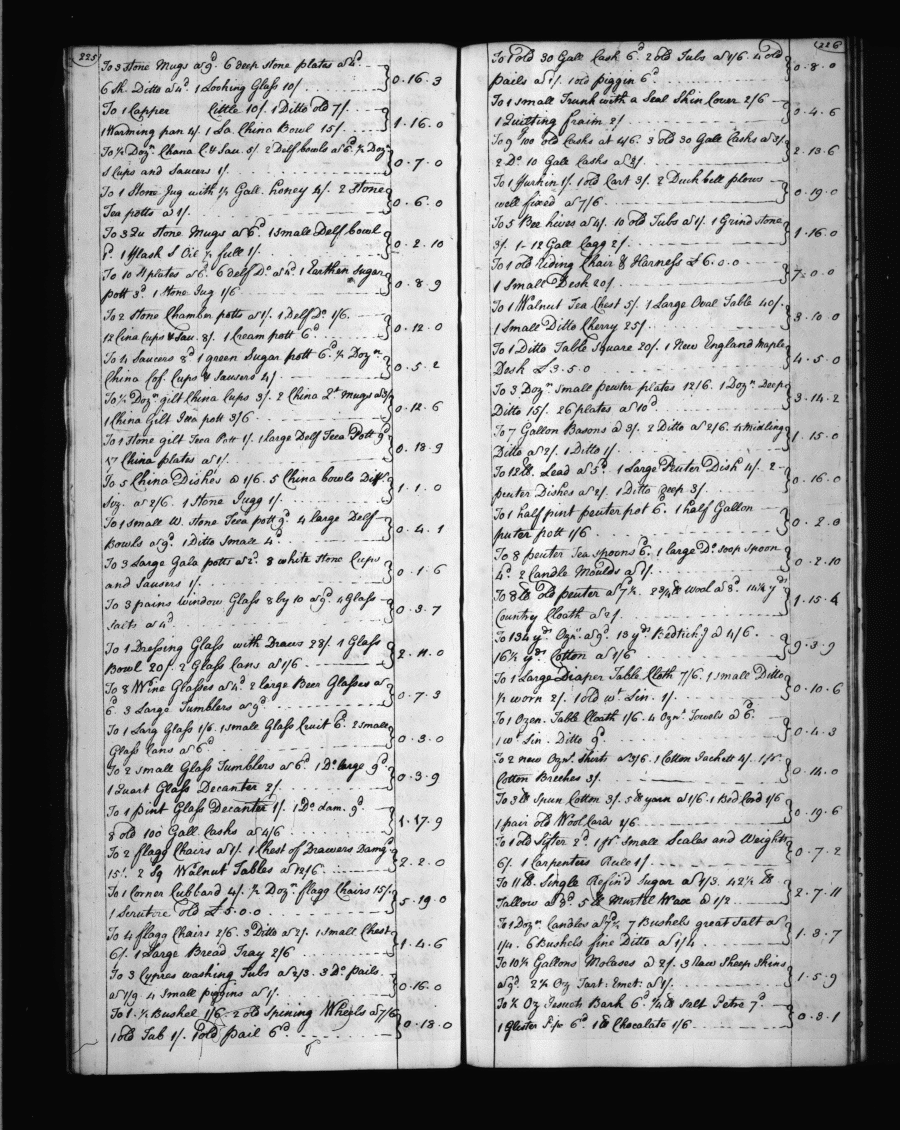 225
To 3 Stone Mugs a 9d. 6 deep stone plates a 4d.
6 Sh. Ditto a 4d. 1 Looking Glass 10/ 0.16.3
To 1 Copper Kettle 10/. 1 Ditto old 7/.
1 Warming pan 4/. 1 La. China Bowl 15/. 1.16.0
To ½ Dozn. Chana C. & Sau. 5/. 2 Delf bowls a 6d. ½ Dozn.
S Cups and Saucers 1/. 0.7.0
To 1 Stone Jug with ½ Gall. honey 4/. 2 Stone
Tea potts a 1/. 0.6.0
To 3 Qu Stone Mugs a 6d. 1 small Delf bowl
1 Flask S Oil ½ full 1/. 0.2.10
To 10 plates a 6d. 6 delf Do. a 4d. 1 Earthen Sugar
pott 3d. 1 Stone Jug 1/6 0.8.9
To 2 Stone Chamber potts a 1/. 1 Delf Do. 1/6.
12 Cina Cups & Sau. 8/. 1 Cream pott 6d. 0.12.0
To 4 Saucers 8d. 1 green Sugar pott 6d. ½ Dozn.
China Cof. Cups & Sausers 4/ 0.5.2
To ½ Dozn. gilt China Cups 3/. 2 China Qt. Mugs a 3/
1 China Gilt Tea pott 3/6 0.12.6
To 1 Stone gilt Tea Pott 1/. 1 large Delf Teea Pott 9d.
17 China plates a 1/. 0.18.9
To 5 China Dishes @ 1/6. 5 China bowls Difft.
Siz. a 2/6. 1 Stone Jugg 1/. 1.1.0
To 1 small W. Stone Teea pott 9d. 4 large Delf
Bowls a 9d. 1 Ditto Small 4d. 0.4.1
To 3 Large Gala potts a 2d. 8 white Stone Cups
and Sausers 1/. 0.1.6
To 3 pains window Glass 8 by 10 a 9d. 4 Glass
Salts a 4d. 0.3.7
To 1 Dressing Glass with Draws 28/. 1 Glass
Bowl 20/. 2 Glass Cans a 1/6 2.11.0
To 8 Wine Glasses a 4d. 2 large Beer Glasses a
6d. 3 Large Tumblers a 9d. 0.7.3
To 1 Larg Glass 1/6. 1 small Glass Cruit 6d. 2 small
Glass Cans a 6d. 0.3.0
To 2 small Glass Tumblers a 6d. 1 Do. large 9d.
1 Quart Glass Decanter 2/. 0.3.9
To 1 pint Glass Decanter 1/. 1 Do. dam. 9d.
8 old 100 Gall. Casks a 4/6 1.17.9
To 2 flagg Chairs a 1/. 1 Chest of Drawers Damgd.
15/. 2 Sq. Walnut Tables a 12/6 2.2.0
To 1 Corner Cubbard 4/. ½ Dozn. flagg Chairs 15/.
1 Scrutore Old £5.0.0 5.19.0
To 4 flagg Chairs 2/6. 3 Ditto a 2/. 1 Small Chest
6/. 1 Large Bread Tray 2/6 1.4.6
To 3 Cypres washing Tubs a 2/3. 3 Do. pails
a 1/9. 4 Small piggins a 1/. 0.16.0
To 1 ½ Bushel 1/6. 2 old Spining Wheels a 7/6
1 old Tab 1/. 1 old Pail 6d. 0.18.0
226
To 1 old 30 Gall Cask 6d. 2 old Tubs a 1/6. 4 old
pails a 1/. 1 old piggin 6d. 0.8.0
To 1 small Trunk with a Seal Skin Cover 2/6
1 Quilting fraim 2/. 0.4.6
To 9 100 old Casks at 4/6. 3 old 30 Gall Casks a 3/.
2 Do. 10 Gall Casks a 2/. 2.13.6
To 1 Furkin 1/. 1 old Cart 3/. 2 Duckbell plows
well fixed a 7/6. 0.19.0
To 5 Bee hives a 4/. 10 old Tubs a 1/. 1 Grind Stone
3/. 1-12 Gall Cagg 2/. 1.16.0
To 1 old riding Chair & Harness £6.0.0
1 Small Desk 20/. 7.0.0
To 1 Walnut Tea Chest 5/. 1 Large Oval Table 40/.
1 Small Ditto Cherry 25/ 3.10.0
To 1 Ditto Table Square 20/. 1 New England Maple
Desk £3.5.0 4.5.0
To 3 Dozn. small pewter plates 12/6. 1 Dozn. Deep
Ditto 15/. 26 plates a 10d. 3.14.2
To 7 Gallon Basons @ 3/. 2 Ditto a 2/6. 4 midling
Ditto a 2/. 1 Ditto 1/. 1.15.0
To 12 lb. Lead a 5d. 1 Large Peuter Dish 4/. 2
peuter Dishes a 2/. 1 Ditto deep 3/. 0.16.0
To 1 half pint peuter pot 6d. 1 half Gallon
puter pott 1/6 0.2.0
To 8 peuter Tea spoons 6d. 1 large Do. Soop Spoon
4d. 2 Candle Moulds a 1/. 0.2.10
To 8 lb old peuter a 7½. 2¾ lb Wool a 8d. 14¼ yds.
Country Cloath a 2/ 1.15.4
To 134 yds. Ozn. a 9d. 13 yds. Bedtick'g @ 4/6.
16½ yds. Cotton a 1/6 9.3.9
To 1 Large Draper Table Cloth 7/6. 1 small Ditto
½ worn 2/. 1 old wt. Lin. 1/. 0.10.6
To 1 Ozen. Table Cloath 1/6. 4 Ozns. Towels @ 6d.
1 wt. Lin. Ditto 9d. 0.4.3
To 2 new Ozns. Shirts a 3/6. 1 Cotton Jackett 4/. 1 pr.
Cotton Breches 3/. 0.14.0
To 3 lb Spun Cotton 3/. 5 lb yarn a 1/6. 1 Bed Cord 1/6
1 pair old Wool Cards 1/6. 0.19.6
To 1 old Sifter 2d. 1 pr. Small Scales and Weights
6/. 1 Carpenters Rule 1/. 0.7.2
To 11 lb. Single Refin'd Sugar a 1/3. 42½ lb
Tallow a 8d. 5 lb Murtle Wax @ 1/2 2.7.11
To 1 Dozn. Candles a 7½. 7 Bushels great Salt a
1/4. 6 Bushels fine Ditto a 1/4 1.3.7
To 10½ Gallons Molases a 2/. 3 Raw Sheep Skins
a 9d. 2¼ Oz Tart. Emet. a 1/. 1.5.9
To ¼ Oz Jesuits Bark 6d. ½ lb Salt Petre 7d.
1 Glister Pipe 6d. 1 lb Chocolate 1/6 0.3.1